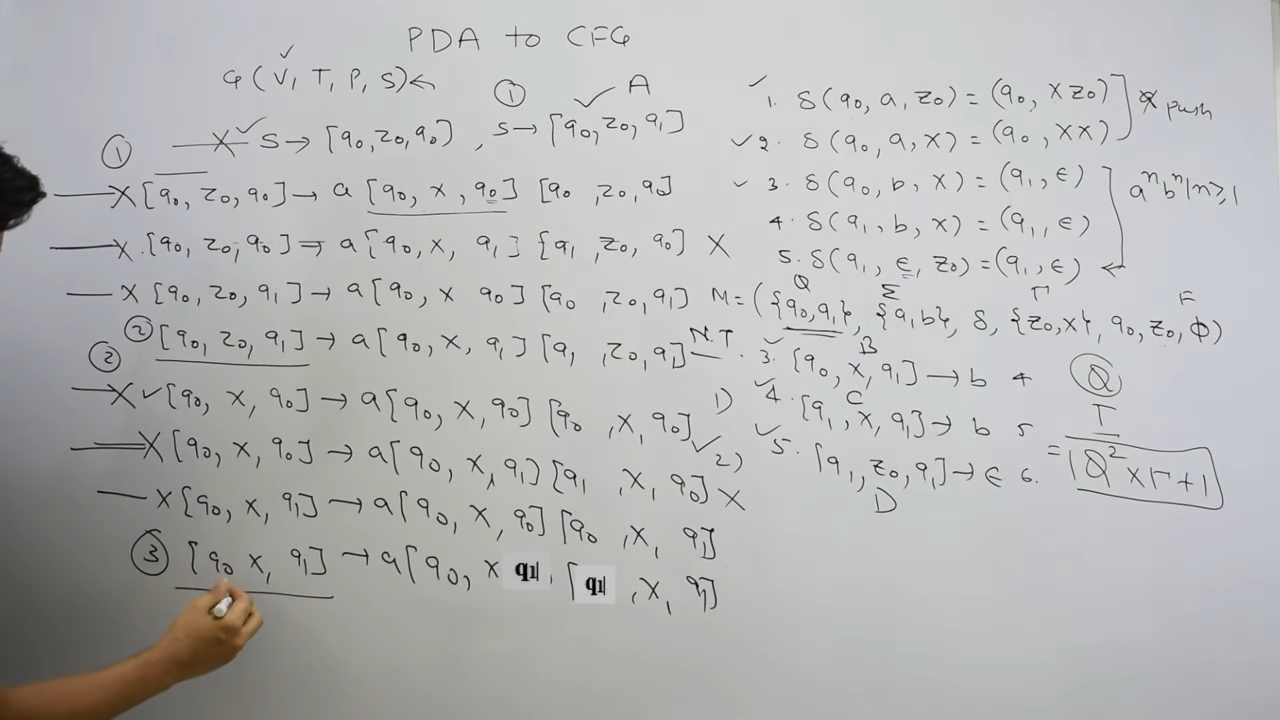 PDA to CFG
G (V, T, P, S) ←
① A
X ✓ S → [q0, z0, q0) , S → [q0, z0, q1]
①
X [q0, z0, q0] → a [q0, x, q0] [q0 , z0, q0]
X [q0, z0, q0] → a[q0, x, q1] [q1, z0, q0] X
X [q0, z0, q1] → a[q0, x q0] [q0 , z0, q1]
② [q0, z0, q1] → a[q0, x, q1] [q1 , z0, q1]
②
X ✓ [q0, x, q0] → a[q0, x, q0] [q0 , x, q0]
X [q0, x, q0] → a[q0, x, q1) [q1 , x, q0] X
X [q0, x, q1] → a[q0, x, q0] [q0 , x, q1]
③ [q0 x, q1] → a[q0, x q1 , [q1 , x, q1]
✓ 1. δ(q0, a, z0) = (q0, xz0)
✓ 2. δ(q0, a, x) = (q0, xx)
push
✓ 3. δ(q0, b, x) = (q1, ε)
4. δ(q1, b, x) = (q1, ε)
5. δ(q1, ε, z0) = (q1, ε) ←
a^n b^n | n ≥ 1
Q Σ Γ F
M = ({q0, q1}, {a, b}, δ, {z0, x}, q0, z0, φ)
N.T
B
✓ 3. [q0, x, q1] → b 4
1) ✓ 4. C
[q1, x, q1] → b 5
✓ 2) ✓ 5. [q1, z0, q1] → ε 6.
D
Q
T
= |Q² x Γ + 1